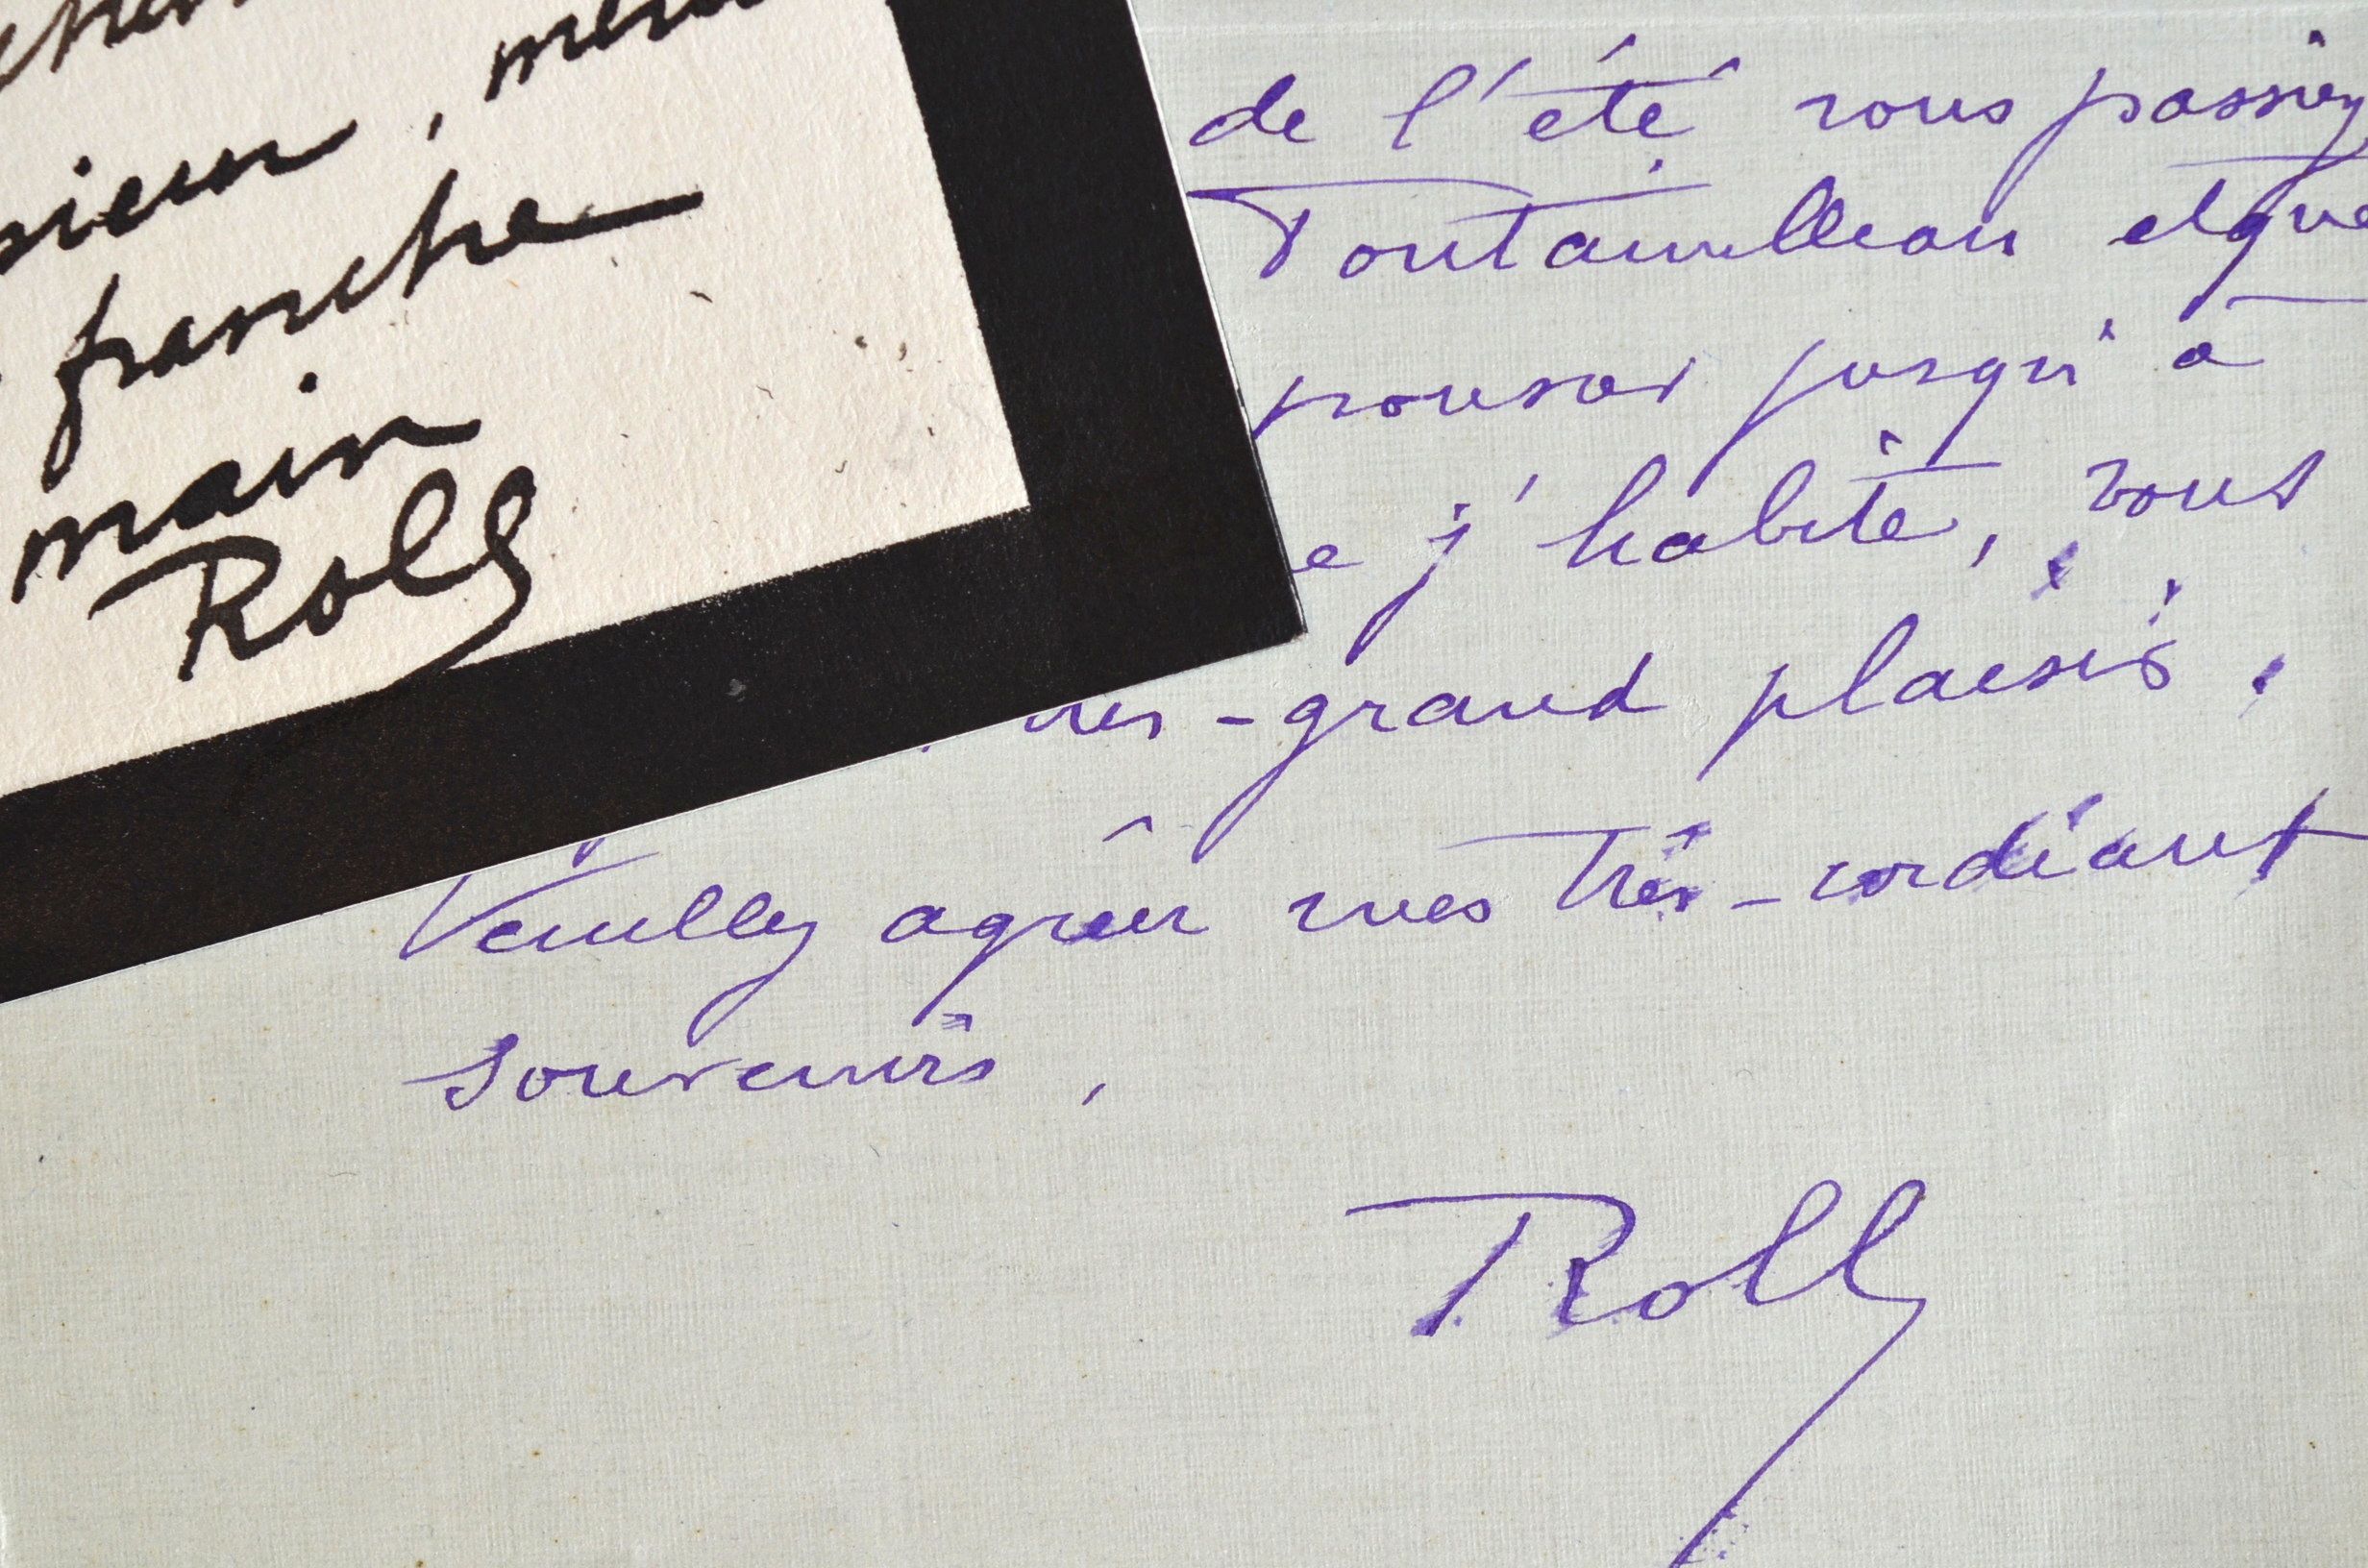 franche
main
Roll
de l'été vous passiez
Fontainebleau et que
pousser jusqu'à
e j'habite, vous
très-grand plaisir.
Veuillez agréer mes très-cordiaux
souvenirs,
Roll